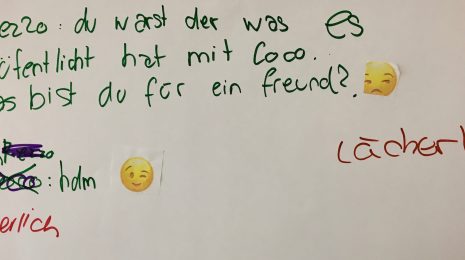 ezzo: du warst der was es
öfentlicht hat mit Coco.
as bist du für ein freund?
Lächerl
: hdm
erlich